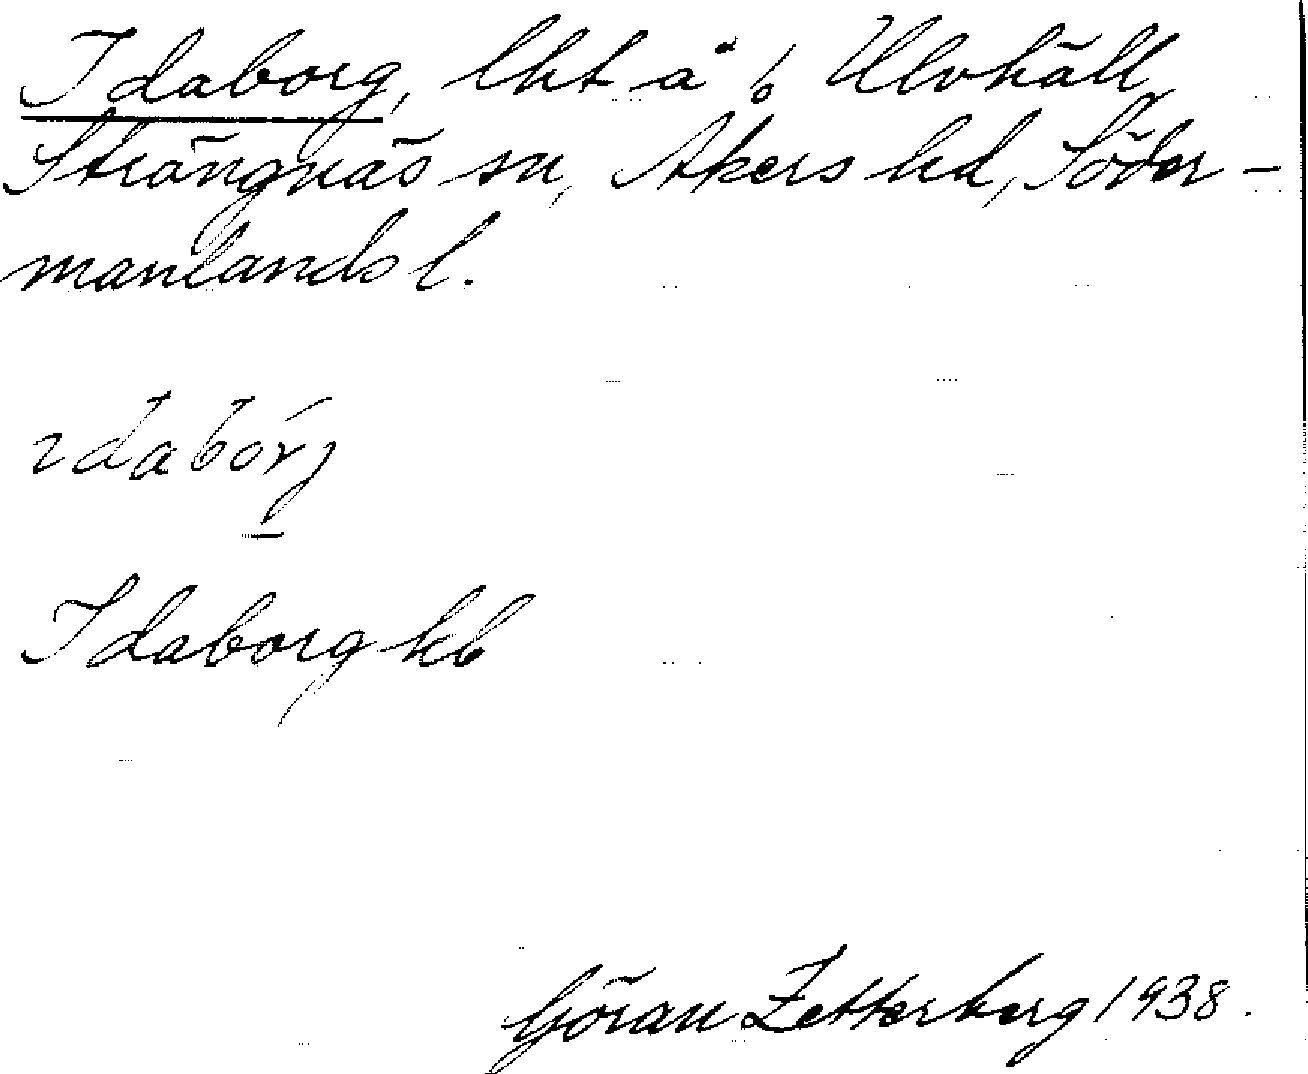 Idaborg, lht å ♀ Ulvhäll,
Strängnäs sn, Åkers hd, Söder-
manlands l.
ıdabórj
Idaborg kb
Göran Zetterberg 1938.